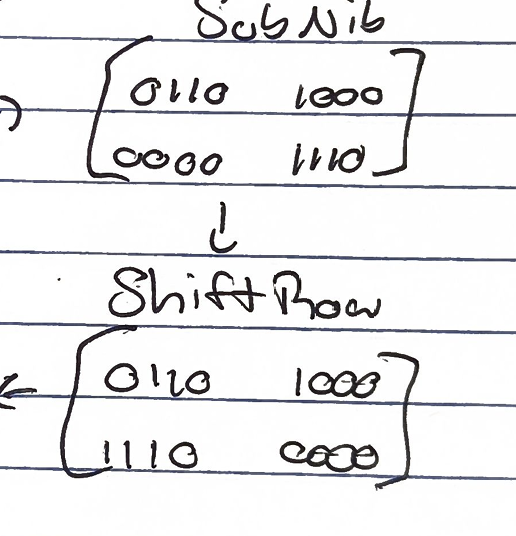 SubNib
0110 1000
0000 1110
↓
ShiftRow
← 0110 1000
1110 0000